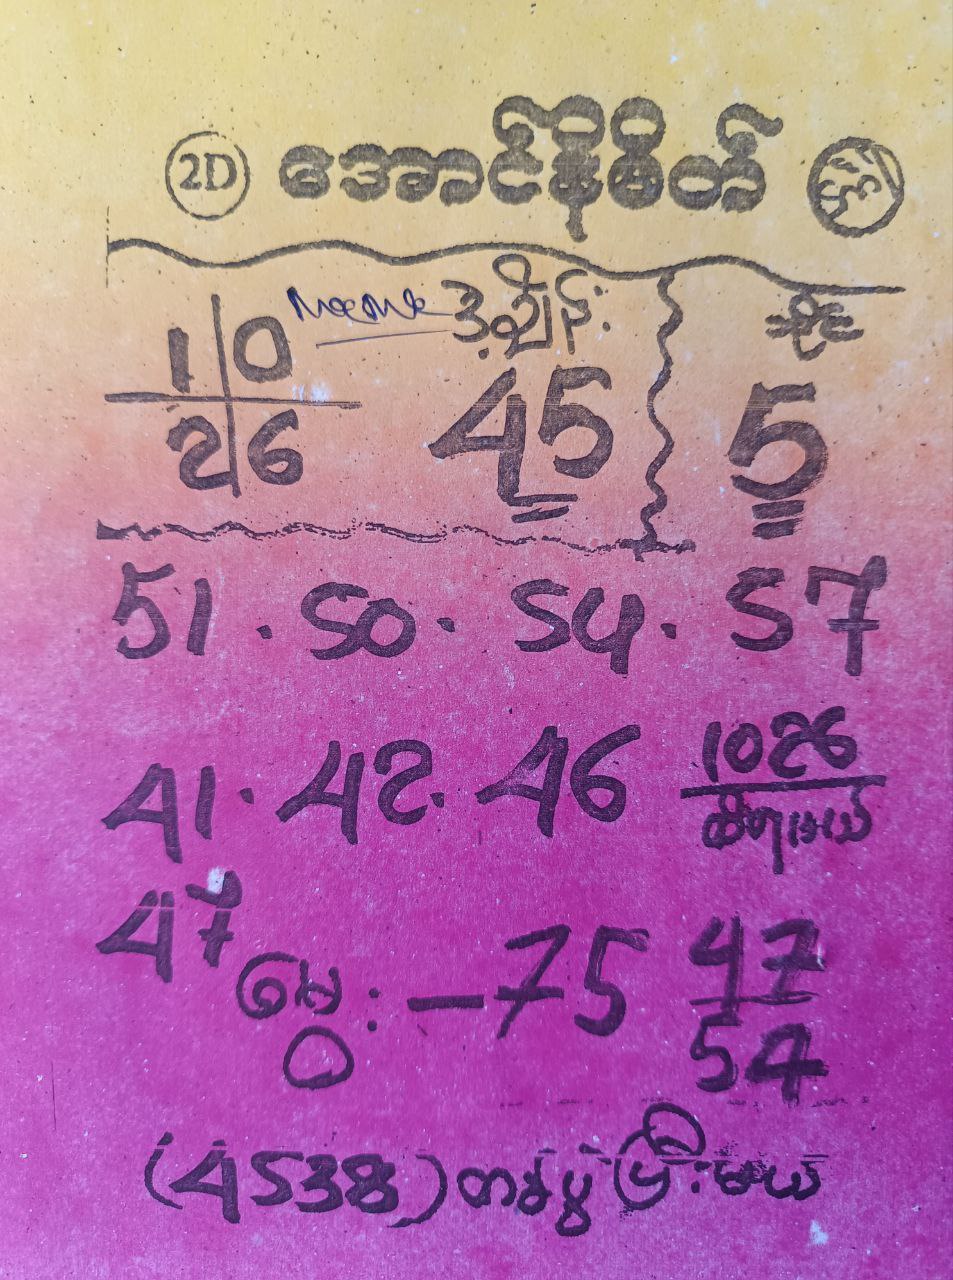 2D အောင်နိမိတ်
10 ဒဲ့ချိန်း ဘိုင်
26 45 5
51 . 50 . 54 . 57
41 . 42 . 46 1026
ထိရမယ်
47 မွေး - 75 47
54
(4538) တစ်ပွဲပြီးမယ်